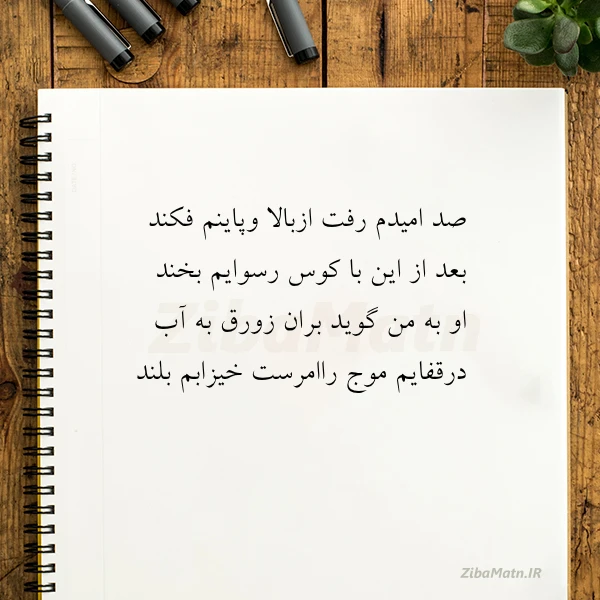 صد امیدم رفت ازبالا وپاینم فکند
بعد از این با کوس رسوایم بخند
او به من گوید بران زورق به آب
درقفایم موج راامرست خیزابم بلند
ZibaMatn
ZibaMatn.IR